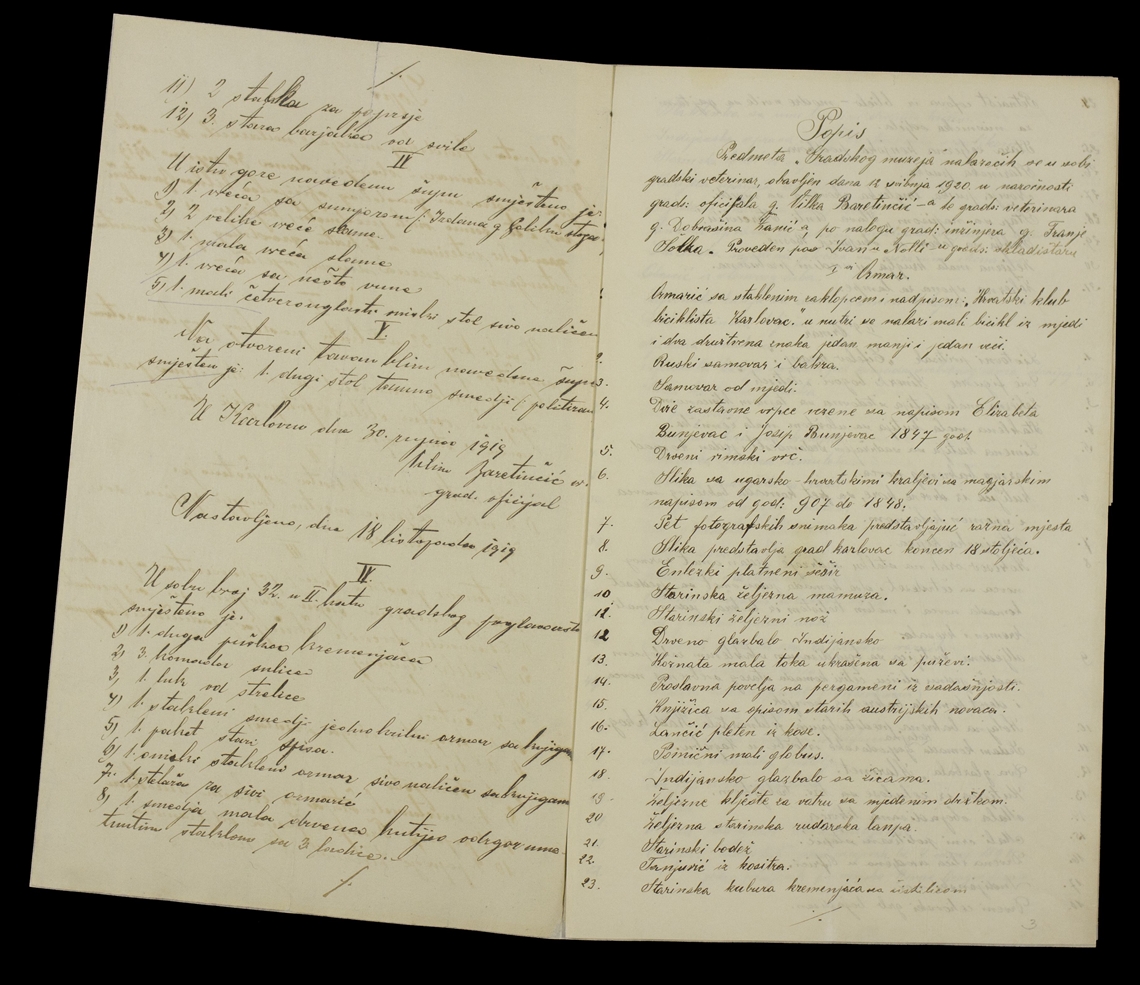 ·/.
11) 2 stalka za poprsje
12) 3. stara barjaka od svile
IV
U istu gore navedenu šupu smješteno je:
1) 1. vreća sa sumporom (: Izdana g.
2) 2 velike vreće slame.
3) 1. mala vreća slame
4) 1. vreća sa nešto vune
5) 1. mali četverouglasti niski stol sivo naličen
V.
Na otvoreni tavan blizu navedene šupe
smješten je: 1. dugi stol tamno smedji (: politiran
U Karlovcu dne 30. rujna 1919
Baretinčić
grad. oficijal
Nastavljeno, dne 18 listopada 1919
IV.
U sobu broj 32. u II. katu gradskog poglavarstva
smješteno je.
1) 1. duga puška kremenjača
2) 3. komada sulica
3) 1. luk od strelice
4) 1. stakleni smedji jednokrilni ormar sa knjiga
5) 1. paket stari spisa.
6) 1. niski stakleni ormar sivo naličen sa knjigam
7. 1. stalaža za sivi ormarić
8) 1. smedja mala drvena kutija odzgor uma-
knutim staklom sa 3 ladice.
·/.
Popis
Predmeta „Gradskog muzeja" nalazećih se u sobi
gradski veterinar, obavljen dana 12 svibnja 1920. u naročnosti
grads: oficijala g. Vilka Baretinčić-a te grads: veterinara
g. Dobrašina Žanić a, po nalogu grads: inžinjera g. Franje
Solka. Proveden po Ivan u Nolli-u grads: skladištaru
I Ormar.
1. Ormarić sa staklenim zaklopcem i nadpisom: „Hrvatski klub
biciklista Karlovac." u nutri se nalazi mali bicikl iz mjedi
i dva družtvena znaka jedan manji i jedan veći.
2. Ruski samovar i bakra.
3. Samovar od mjedi.
4. Dvie zastavne vrpce vezene sa napisom Elizabeta
Bunjevac i Josip Bunjevac 1847 god.
5. Drveni rimski vrč.
6. Slika sa ugarsko-hrvatskimi kraljevi sa magjarskim
napisom od god: 907 do 1848.
7. Pet fotografskih snimaka predstavljajuć razna mjesta
8. Slika predstavlja grad Karlovac koncem 18 stoljeća.
9. Englezki platneni šešir
10 Starinska željezna mamuza.
11. Starinski željezni nož
12 Drveno glazbalo Indijansko
13. Kožnata mala toka ukrašena sa puževi.
14. Proslavna povelja na pergameni iz sadašnjosti.
15. Knjižica sa opisom starih austrijskih novaca.
16. Lančić pleten iz kose.
17. Pomični mali globus.
18. Indijansko glazbalo sa žicama.
19. Željezne kliješte za vatru sa mjedenim držkom.
20 Željezna starinska rudarska lampa.
21. Starinski bodež
22. Tanjurić iz kositra.
23. Starinska kubura kremenjača sa
·/.
3